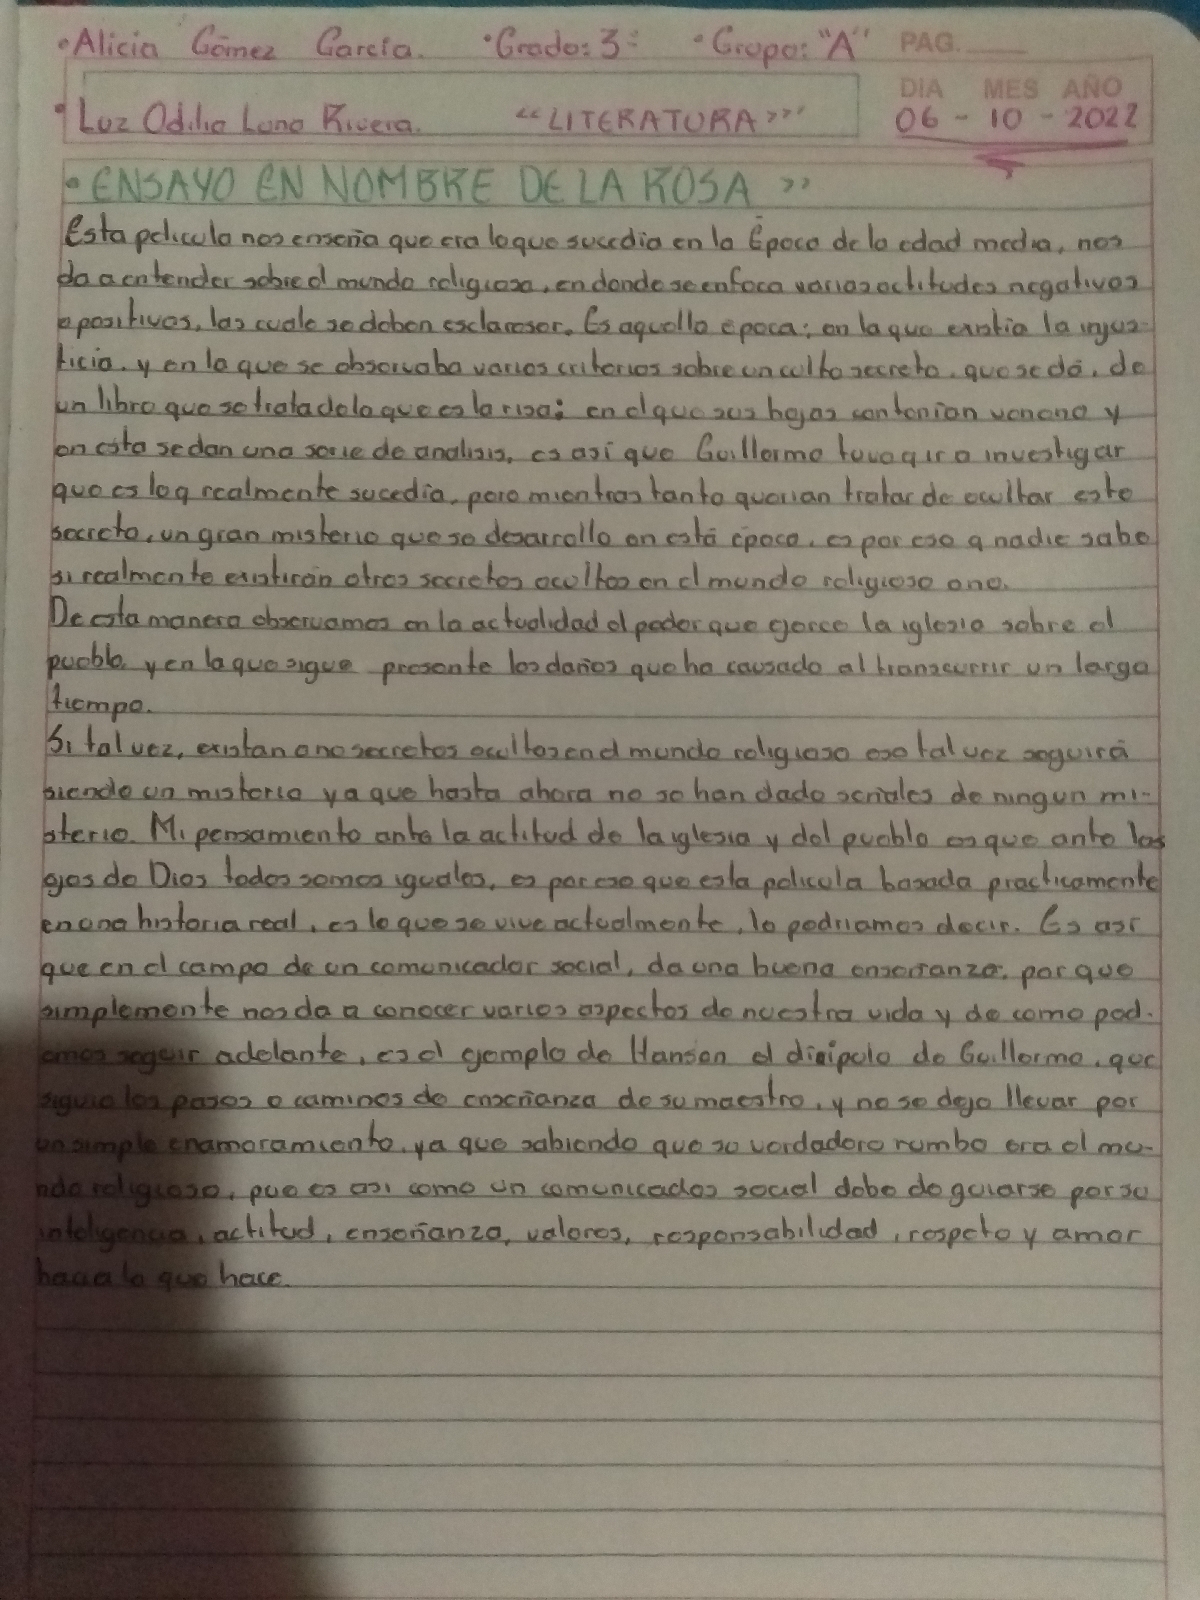 •Alicia Gómez García. •Grado: 3: •Grupo: "A" PAG.
DIA MES AÑO
•Luz Odilia Luna Rivera. "LITERATURA" 06 - 10 - 2022
•ENSAYO EN NOMBRE DE LA ROSA ››
Esta pelicula nos enseña que era lo que sucedia en la Época de la edad media, nos
da a entender sobre el mundo religioso, en donde se enfoca varias actitudes negativos
o positivos, las cuale se deben esclareser. Es aquella época; en la que existia la injus-
ticia, y en la que se observaba varios criterios sobre un culto secreto, que se dá, de
un libro que se trata de lo que es la risa; en el que sus hojas contenian veneno y
en esta se dan una serie de analisis, es así que Guillermo tuvo q ir a investigar
que es lo q realmente sucedia, pero mientras tanto querian tratar de ocultar este
secreto, un gran misterio que se desarrollo en está época, es por eso q nadie sabe
si realmente existirán otros secretos ocultos en el mundo religioso o no.
De esta manera observamos en la actualidad el poder que ejerce la iglesia sobre el
pueblo, y en la que sigue presente los daños que ha causado al transcurrir un largo
tiempo.
Si tal vez, existan o no secretos ocultos en el mundo religioso eso tal vez seguirá
siendo un misterio ya que hasta ahora no se han dado señales de ningun mi-
sterio. Mi pensamiento ante la actitud de la iglesia y del pueblo es que ante los
ojos de Dios todos somos iguales, es por eso que esta pelicula basada practicamente
en una historia real, es lo que se vive actualmente, lo podriamos decir. Es asi
que en el campo de un comunicador social, da una buena enseñanza, por que
simplemente nos da a conocer varios aspectos de nuestra vida y de como pod-
emos seguir adelante, es el ejemplo de Hanson el disipulo de Guillermo, que
siguio los pasos o caminos de enseñanza de su maestro, y no se dejo llevar por
un simple enamoramiento, ya que sabiendo que su verdadero rumbo era el mu-
ndo religioso, pue es asi como un comunicados social debe de guiarse por su
inteligencia, actitud, enseñanza, valores, responsabilidad, respeto y amor
hacia lo que hace.